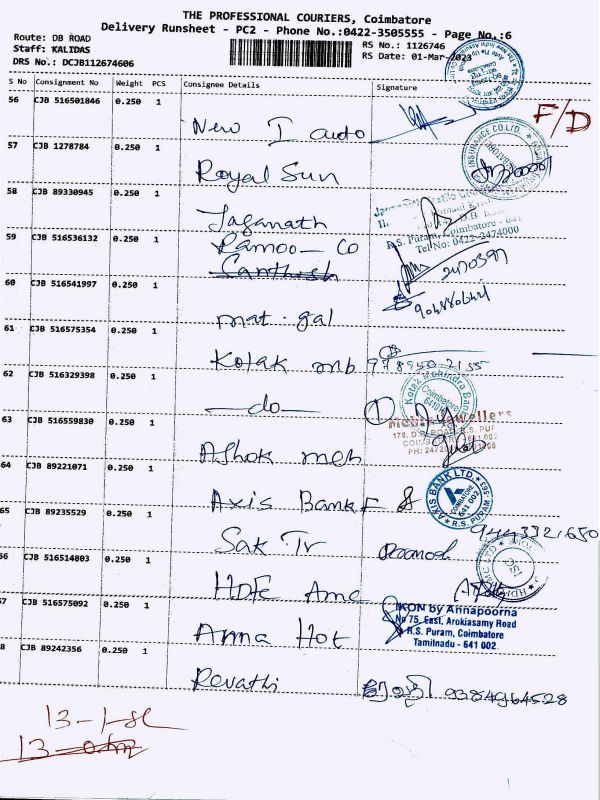 THE PROFESSIONAL COURIERS, Coimbatore
Delivery Runsheet - PC2 - Phone No.:0422-3505555 - Page No.:6
Route: DB ROAD
Staff: KALIDAS
DRS No.: DCJB112674606
RS No.: 1126746
RS Date: 01-Mar-2023
S No Consignment No Weight PCS Consignee Details Signature
56 CJB 516501846 0.250 1
New I auto
F/D
57 CJB 1278784 0.250 1
INSURANCE CO.LTD.
Royal Sun
58 CJB 89330945 0.250 1
Jaganath
R.S. Puram, Coimbatore - 641
Tel No: 0422-2474000
59 CJB 516536132 0.250 1
Ramoo - Co
60 CJB 516541997 0.250 1
mat. gal
61 CJB 516575354 0.250 1
Kotak mb
62 CJB 516329398 0.250 1
Kotak Mahindra Bank
Coimbatore
-do-
Jewellers
178, D.B. ROAD, R.S. PUR
COIMBATORE - 641 002
63 CJB 516559830 0.250 1
Ashok meh
64 CJB 89221071 0.250 1
Axis Bank F
AXIS BANK LTD.
COIMBATORE
641 002
R.S. PURAM
65 CJB 89235529 0.250 1
Sak Tr
66 CJB 516514803 0.250 1
HDFC Amc
67 CJB 516575092 0.250 1
Anna Hot
IKON by Annapoorna
No 75, East, Arokiasamy Road
R.S. Puram, Coimbatore
Tamilnadu - 641 002
68 CJB 89242356 0.250 1
Revathi
ரேவதி 9384964528